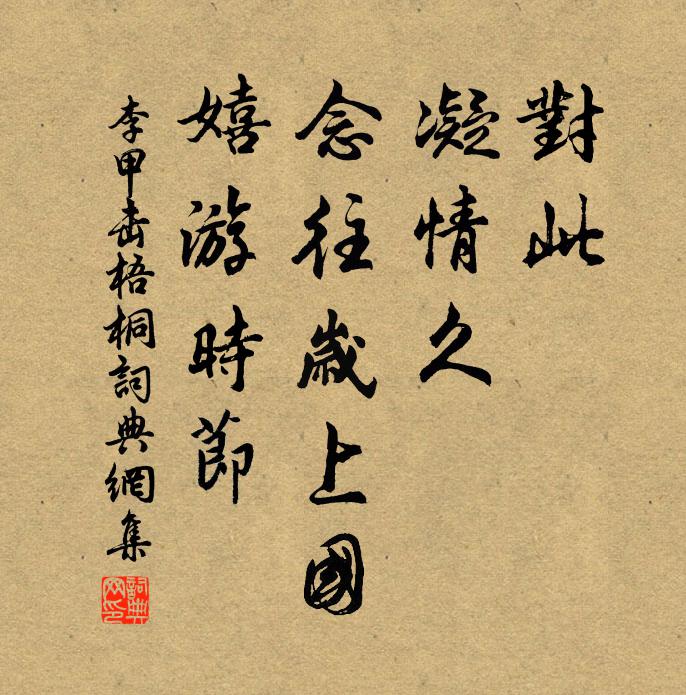 對此
凝情久
念往歲上國
嬉游時節
李甲击梧桐詞典網集
詞典网印